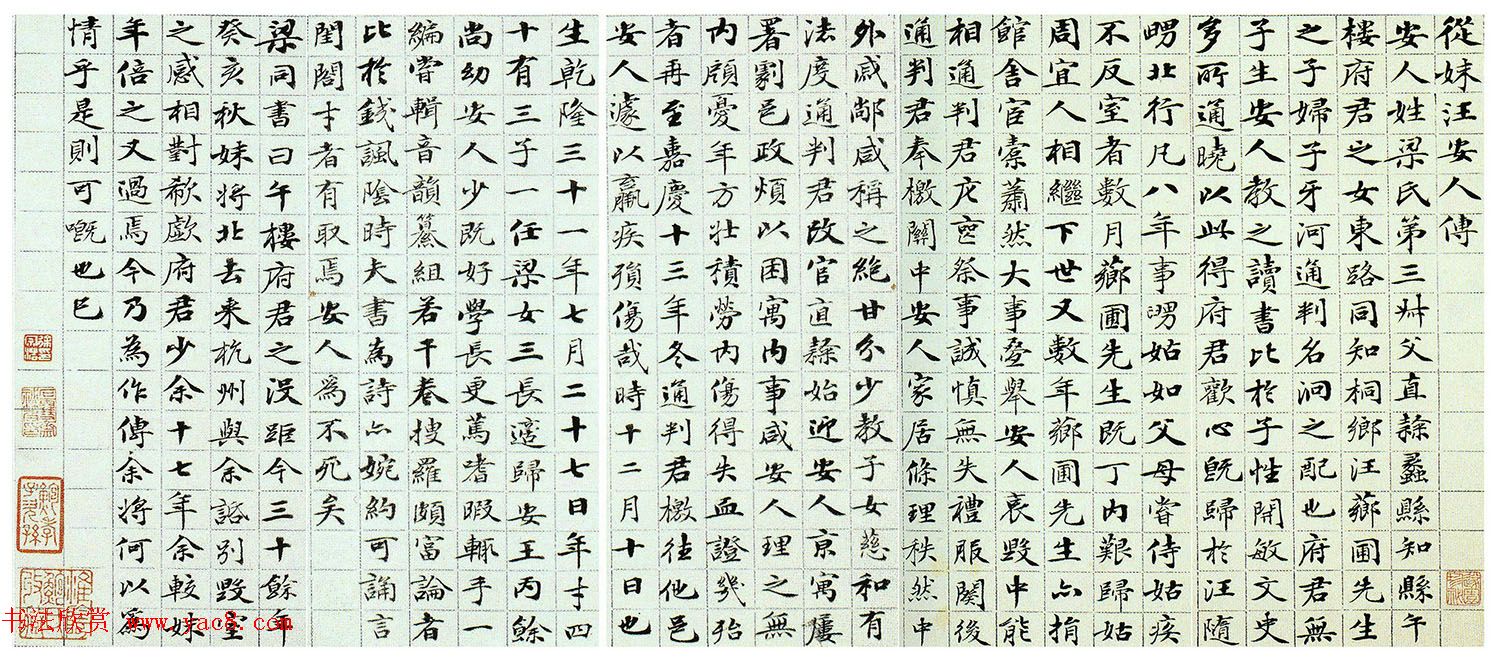 從妹汪安人傳
安人姓梁氏第三叔父直隸蠡縣知縣午
樓府君之女東路同知桐鄉汪薌圃先生
之子婦子牙河通判名泂之配也府君無
子生安人教之讀書比於子性開敏文史
多所通曉以此得府君歡心既歸於汪隨
舅北行凡八年事舅姑如父母嘗侍姑疾
不反室者數月薌圃先生既丁內艱歸姑
周宜人相繼下世又數年薌圃先生亦捐
館舍官橐蕭然大事疊舉安人哀毀中能
相通判君庀喪祭事誠慎無失禮服闋後
通判君奉檄關中安人家居條理秩然中
外戚鄰咸稱之絕甘分少教子女慈和有
法度通判君改官直隸始迎安人京寓屢
署劇邑政煩以困寓內事咸安人理之無
內顧憂年方壯積勞內傷得失血證幾殆
者再至嘉慶十三年冬通判君檄往他邑
安人遽以羸疾殞傷哉時十二月十日也
生乾隆三十一年七月二十七日年才四
十有三子一任梁女三長適歸安王丙餘
尚幼安人少既好學長更篤嗜暇輒手一
編嘗輯音韻纂組若干卷搜羅頗富論者
比於錢諷陰時夫書為詩亦婉約可誦言
閨閤才者有取焉安人為不死矣
梁同書曰午樓府君之沒距今三十餘年
癸亥秋妹將北去來杭州與余謚別毀室
之感相對欷歔府君少余十七年余較妹
年倍之又過焉今乃為作傳余將何以為
情乎是則可嘅也已
书法欣赏 www.yac8.com